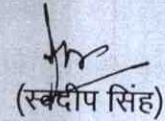 (स्वदीप सिंह)